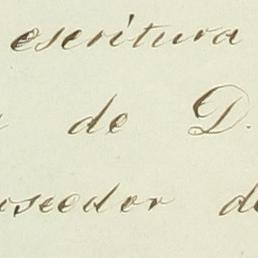 escritura
de D.
oseedor de